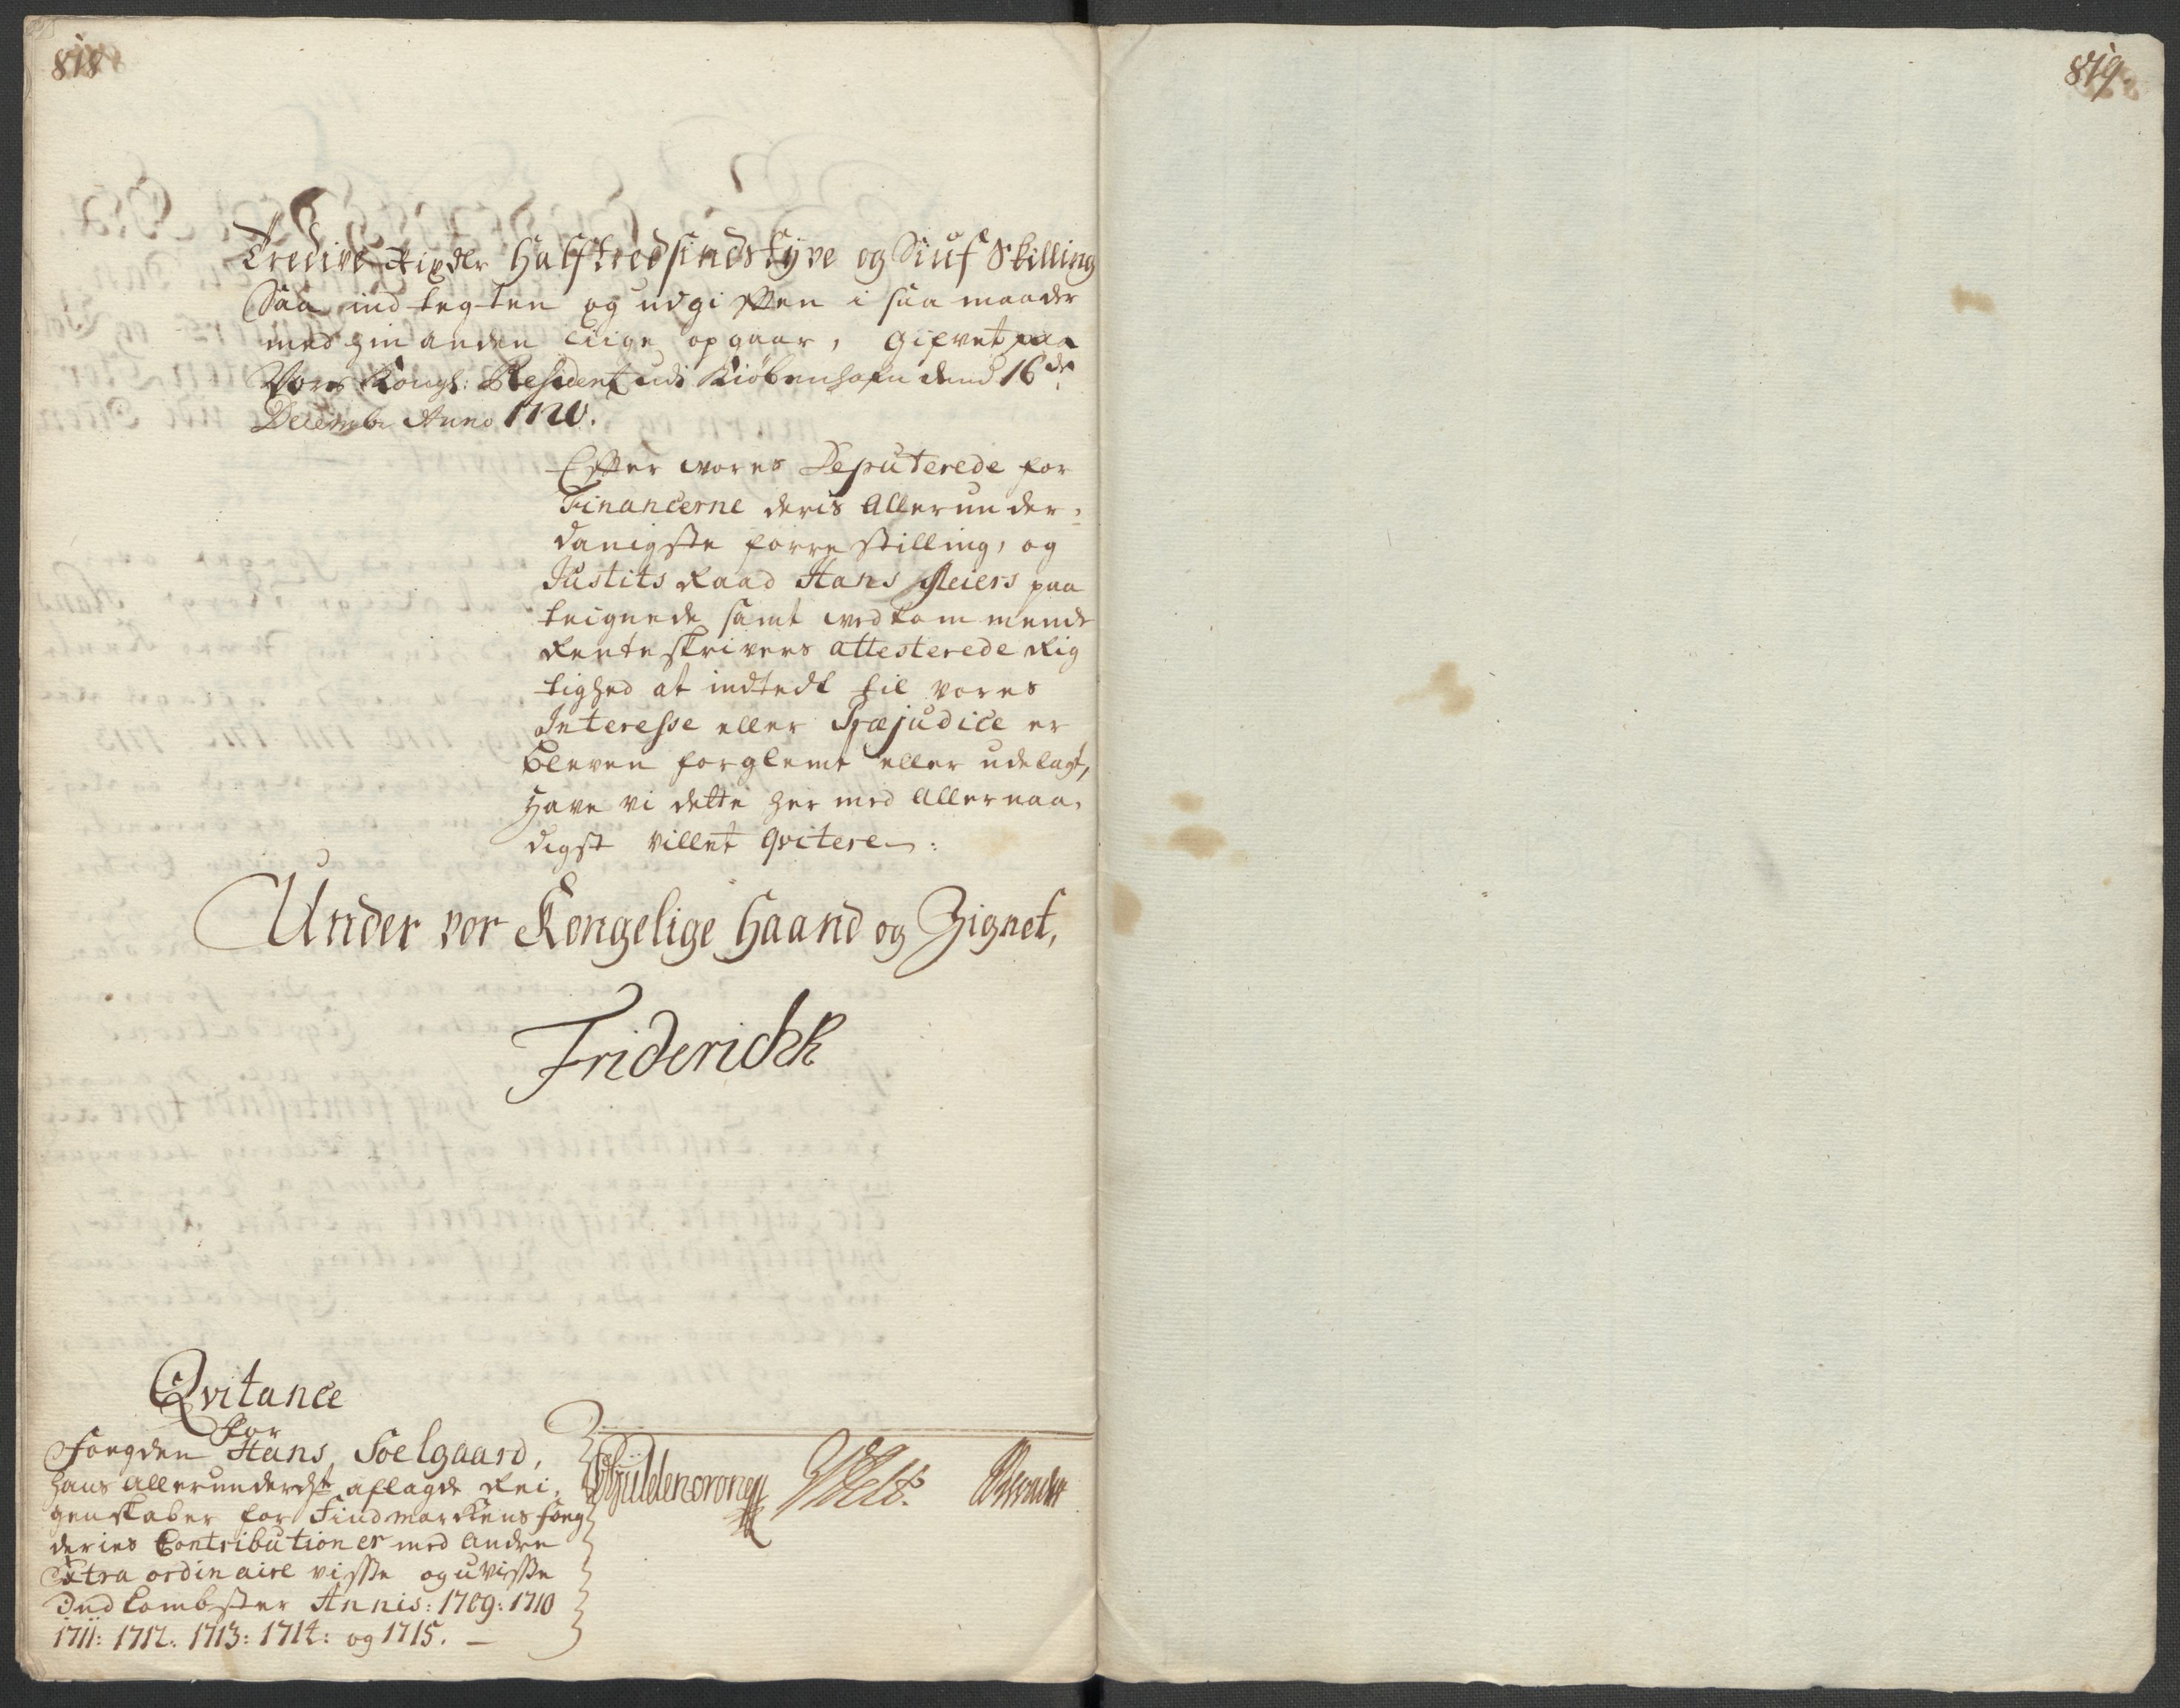 818
819.
Tredive Rixdlr Halftredsindstyve og Siuf Skilling
Saa indtegten og udgifften i saa maader
med hinanden liige opgaar, Gifvet paa
Vores Kongl: Residentz udi Kiöbenhafn dend 16de
Decembr Anno 1720.
Effter vores Deputerede for
Financerne deris Allerunder-
danigste forrestilling, og
Justits Raad Hans Meiers paa
teignede samt vedkommende
Renteskrivers attesterede Rig
tighed at indtedt til vores
Interesse eller Præjudice er
bleven forglemt eller udelagt,
Have vi dette her med Allernaa-
digst villet qvitere:
Under vor Kongelige Haand og Zignet,
Friderich R
Qvitance
for
Fogden Hans Soelgaard,
hans allerunderdgst aflagde Rei-
genskaber for Findmarckens fog
deries Contributioner med andre
Extra ordinaire visse og uvisse
Indkombster Annis: 1709: 1710
1711: 1712: 1713: 1714: og 1715. –
CGüldencronep